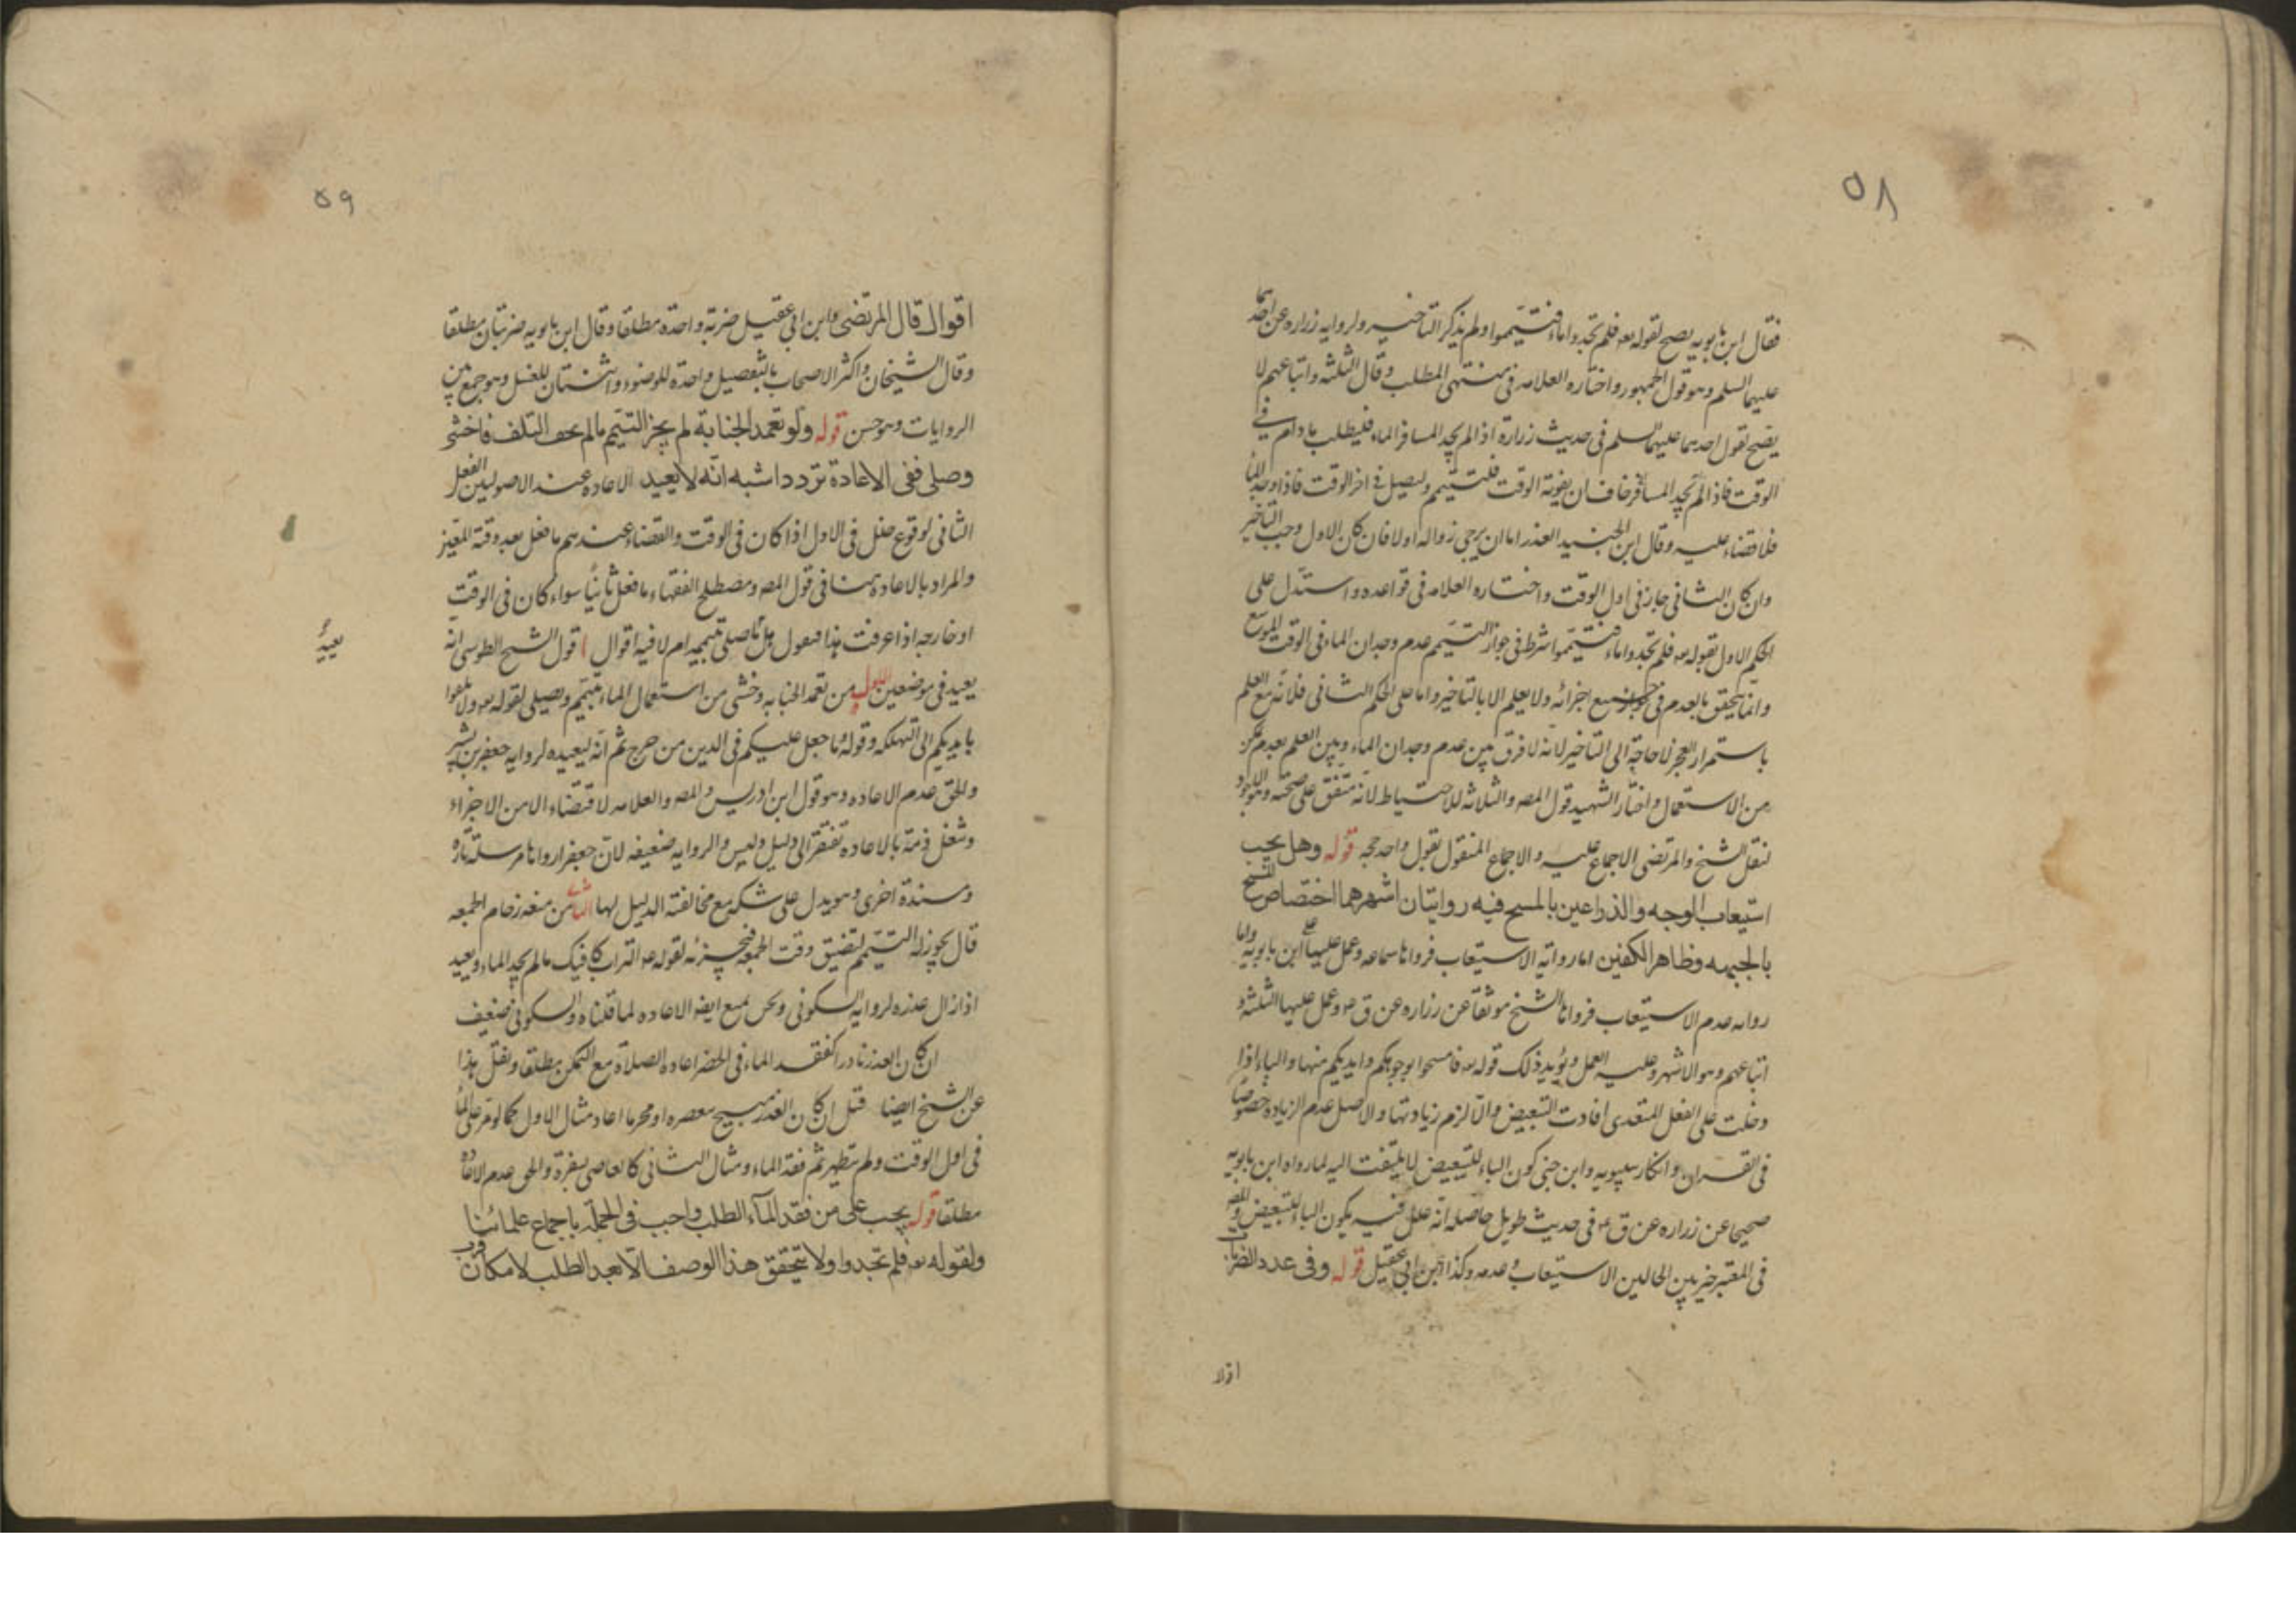 ٥٨
فقال ابن بابويه يصح لقوله تعه فلم تجدوا ماء فتيمموا ولم يذكر التاخير ولروايه زراره عن احدهما
عليهما السلم وهو قول الجمهور واختاره العلامه فى منتهى المطلب وقال الثلثه واتباعهم لا
يصح لقول احدهما عليهما السلم فى حديث زرارة اذا لم يجد المسافر الماء فليطلب مادام فى
الوقت فاذا لم يجد المسافر خاف ان يفوته الوقت فليتيمم وليصل فى اخر الوقت فاذا وجد الماء
فلا قضاء عليه وقال ابن الجنيد العذر اما ان يرجى زواله اولا فان كان الاول وجب التاخير
وان كان الثانى جاز فى اول الوقت واختاره العلامه فى قواعده واستدل على
الحكم الاول بقوله تعه فلم تجدوا ماء فتيمموا شرط فى جواز التيمم عدم وجدان الماء فى الوقت الموسع
وانما يتحقق بالعدم فى جميع اجزائه ولا يعلم الا بالتاخير واما على الحكم الثانى فلانه مع العلم
باستمرار العجز لا حاجة الى التاخير لانه لا فرق بين عدم وجدان الماء وبين العلم بعدم تمكن
من الاستعمال واختار الشهيد قول المص والثلاثه للاحتياط لانه متفق على صحته
لنقل الشيخ والمرتضى الاجماع عليه والاجماع المنقول بقول واحد حجه قوله وهل يجب
استيعاب الوجه والذراعين بالمسح فيه روايتان اشهرهما اختصاص المسح
بالجبهه وظاهر الكفين اما رواية الاستيعاب فرواها سماعه وعمل عليها على ابن بابويه واما
روايه عدم الاستيعاب فرواها الشيخ موثقا عن زراره عن ق عه وعمل عليها الثلثه و
اتباعهم وهو الاشهر وعليه العمل ويؤيد ذلك قوله تعه فامسحوا بوجوهكم وايديكم منها والباء اذا
دخلت على الفعل المتعدى افادت التبعيض والا لزم زيادتها والاصل عدم الزيادة خصوصا
فى القران وانكار سيبويه وابن جنى كون الباء للتبعيض لا يلتفت اليه لما رواه ابن بابويه
صحيحا عن زراره عن ق عه فى حديث طويل حاصله انه علل فيه بكون الباء للتبعيض والمص
فى المعتبر خير بين الحالين الاستيعاب وعدمه وكذا ابن ابى عقيل قوله وفى عدد الضربات
اقوال
٥٩
اقوال قال المرتضى وابن ابى عقيل ضربة واحدة مطلقا وقال ابن بابويه ضربتان مطلقا
وقال الشيخان واكثر الاصحاب بالتفصيل واحدة للوضوء واثنتان للغسل وهو جمع بين
الروايات وهو حسن قوله ولو تعمد الجنابة لم يجز التيمم ما لم يخف التلف فان خشى
وصلى ففى الاعادة تردد اشبه انه لا يعيد الاعاده عند الاصوليين الفعل
الثانى لوقوع خلل فى الاول اذا كان فى الوقت والقضاء عندهم ما فعل بعد وقته المعين
والمراد بالاعاده هنا فى قول المص ومصطلح الفقهاء ما فعل ثانيا سواء كان فى الوقت
او خارجه اذا عرفت هذا فنقول هل ما صلى بتيممه ام لا فيه اقوال ا قول الشيخ الطوسى انه
يعيد فى موضعين الاول من تعمد الجنابه وخشى من استعمال الماء تيمم ويصلى لقوله تعه ولا تلقوا
بايديكم الى التهلكه وقوله ما جعل عليكم فى الدين من حرج ثم انه يعيده لروايه جعفر بن بشير
والحق عدم الاعاده وهو قول ابن ادريس والمص والعلامه لاقتضاء الامر الاجزاء
وشغل ذمة بالاعاده تفتقر الى دليل وليس والروايه ضعيفه لان جعفرا رواها مرسلة تارة
ومسندة اخرى وهو يدل على شكه مع مخالفته الدليل لها الثانى من منعه زحام الجمعه
قال يجوز له التيمم لتضيق وقت الجمعه فيجزئه لقوله عه التراب كافيك ما لم تجد الماء ويعيد
اذا زال عذره لروايه السكونى ونحن نمنع ايضا الاعاده لما قلناه والسكونى ضعيف
ان كان العذر نادرا كفقد الماء فى الحضر اعاده الصلاة مع التمكن مطلقا ونقل هذا
عن الشيخ ايضا قيل ان كان العذر مسبح معصره او محرما اعاد مثال الاول كما لو مر على الماء
فى اول الوقت ولم يتطهر ثم فقد الماء ومثال الثانى كالعاصى بسفره والحق عدم الاعاده
مطلقا قوله يجب على من فقد الماء الطلب واجب فى الجملة باجماع علمائنا
ولقوله تعه فلم تجدوا ولا يتحقق هذا الوصف الا بعد الطلب لامكان قرب